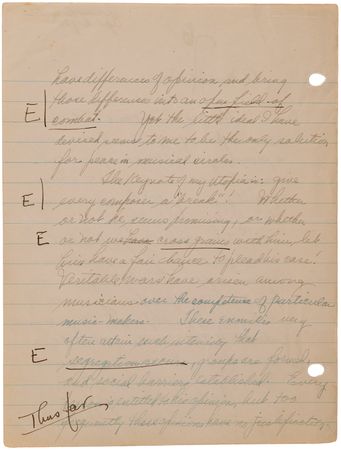 have differences of opinion and bring
those differences into an open field of
E combat. Yet the little idea I have
devised seems to me to be the only solution
for peace in musical circles.
E The Keynote of my Utopia is: give
every composer a "break"! Whether
or not he seems promising, or whether
E or not we have cross with him, let
him have a fair chance to plead his case!
Veritable wars have arisen among
musicians over the competence of particular
music-makers. These enmities very
often attain such intensity that
E segregation occurs, groups are formed,
and social barriers established. Every
is entitled to his opinion, but too
frequently those opinions have no justification.
Thus far